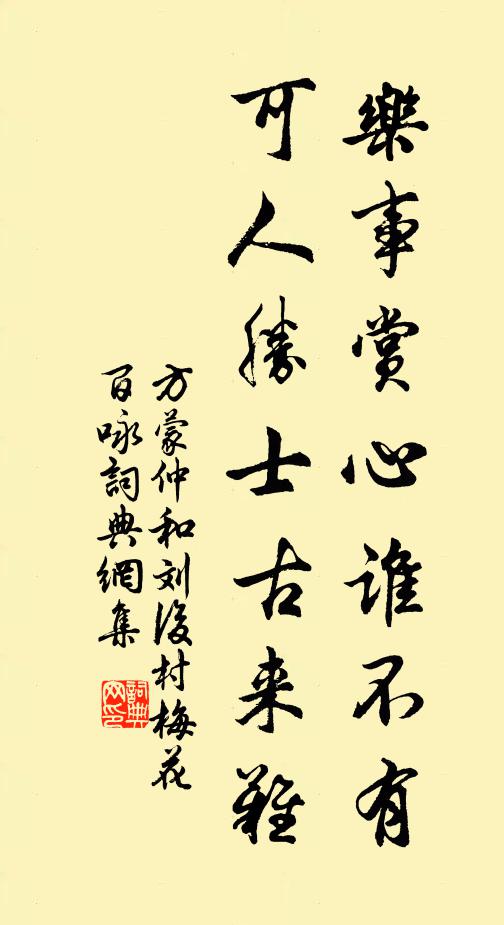 樂事賞心誰不有
可人勝士古来難
方蒙仲和刘後村梅花
百咏詞典網集
詞典
网印